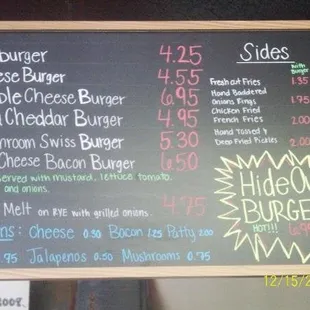 burger 4.25
ese Burger 4.55
ble Cheese Burger 6.95
Cheddar Burger 4.95
hroom Swiss Burger 5.30
Cheese Bacon Burger 6.50
erved with mustard, lettuce, tomato,
and onions.
Melt on RYE with grilled onions. 4.75
ons: Cheese 0.50 Bacon 1.25 Patty 2.00
.95 Jalapenos 0.50 Mushrooms 0.75
Sides
with Burger
Fresh cut Fries 1.35
Hand Baddered
Onions Rings 1.75
Chicken Fried
French Fries 2.00
Hand Tossed &
Deep Fried Pickles 2.00
HideOu
BURGE
HOT!!! 6.95
2008.
12/15/2